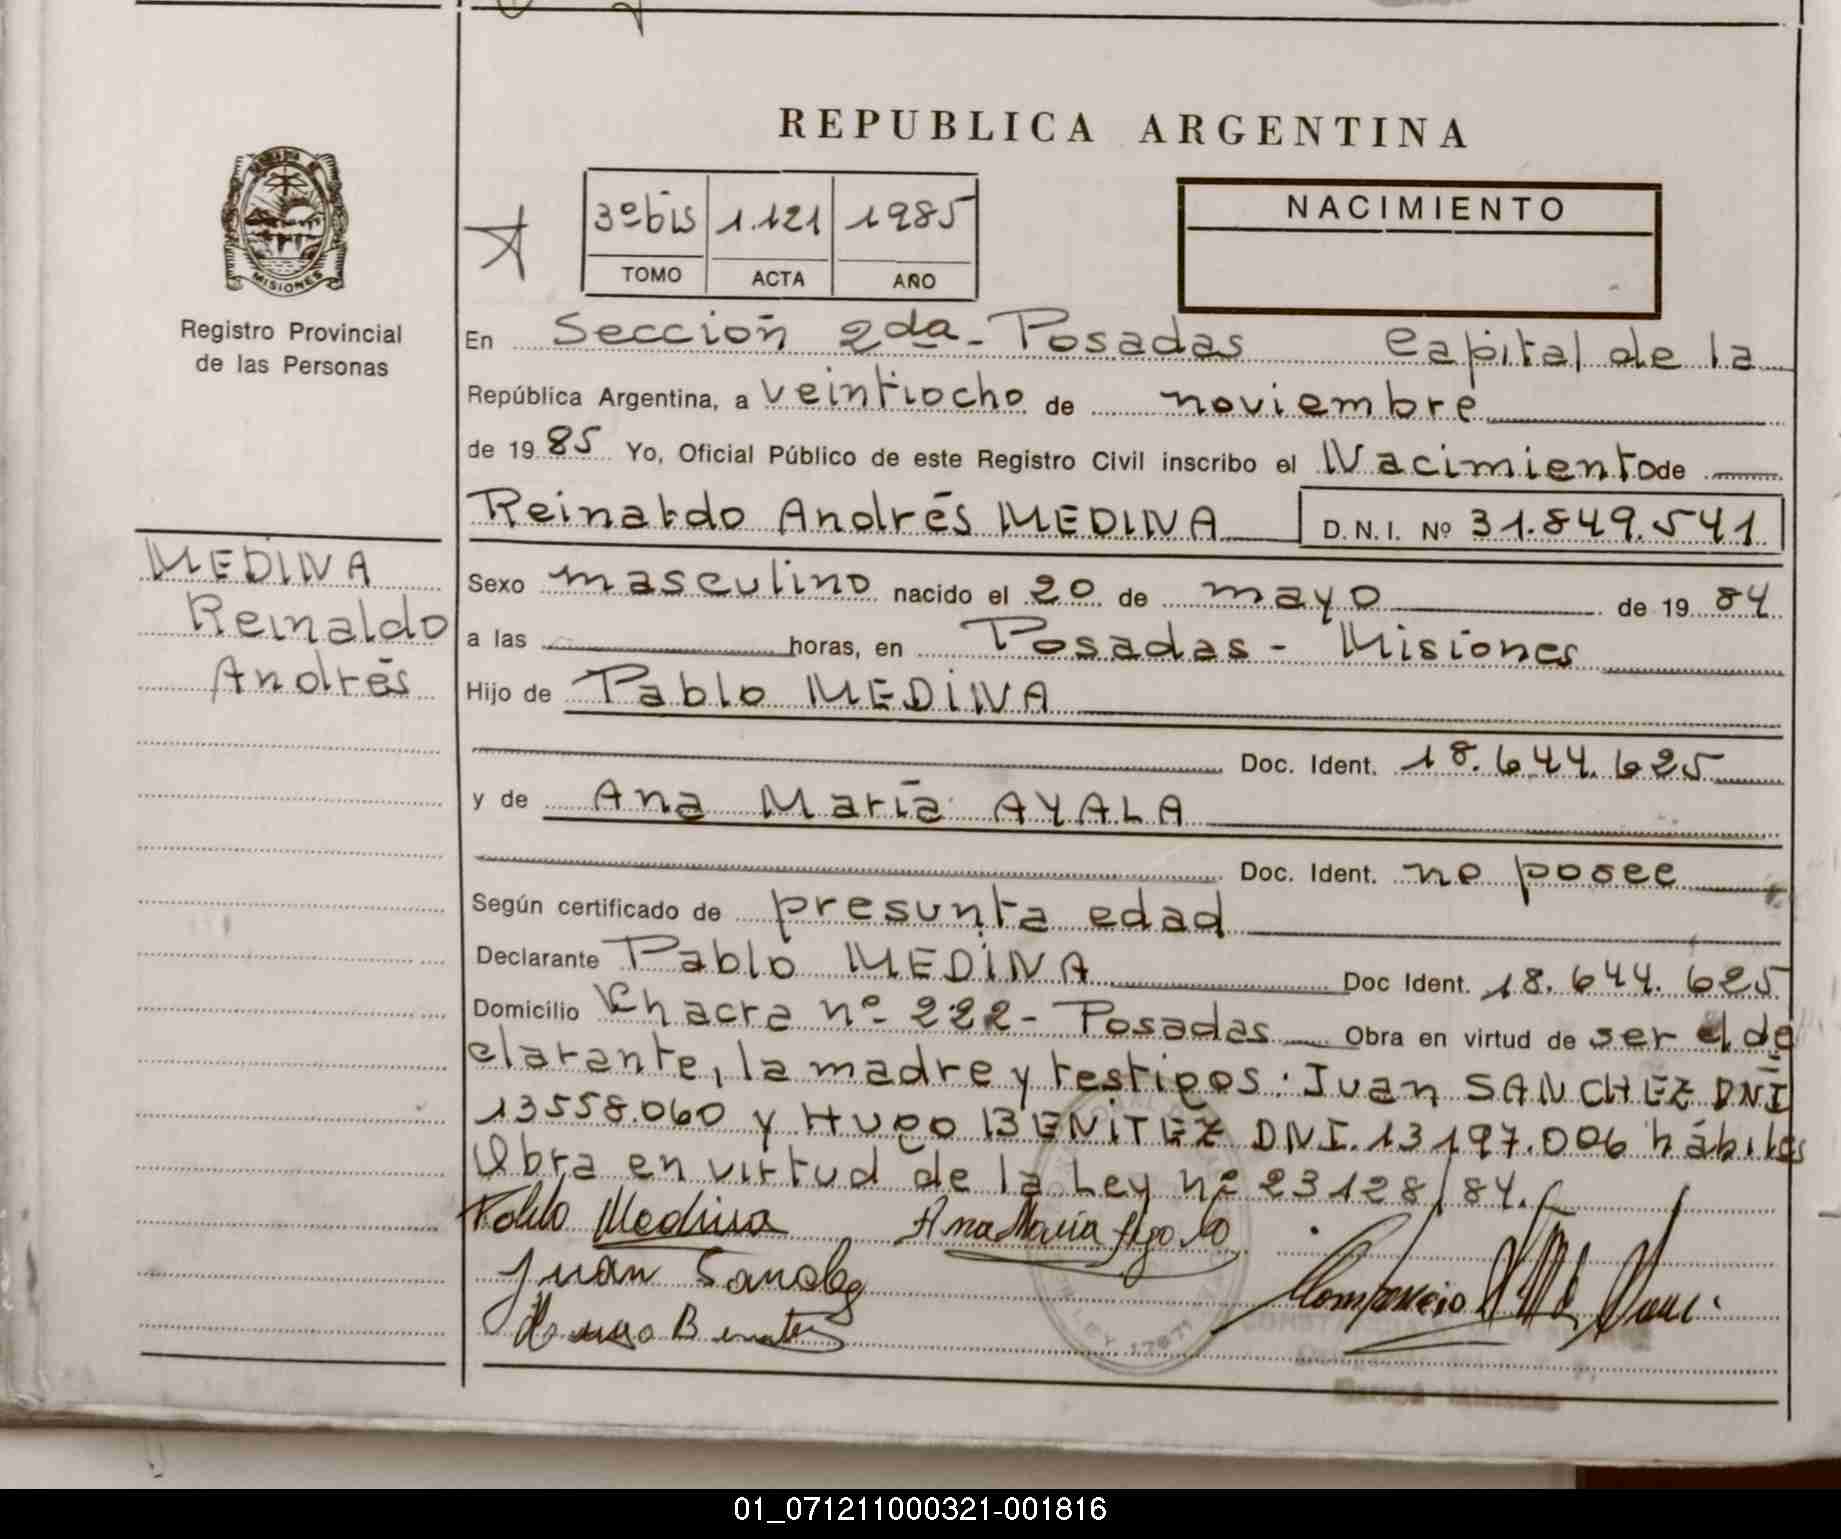 REPUBLICA ARGENTINA
3º bis 1.121 1985
TOMO ACTA AÑO
NACIMIENTO
MISIONES
Registro Provincial
de las Personas
En Sección 2da - Posadas Capital de la
República Argentina, a veintiocho de noviembre
de 19 85 Yo, Oficial Público de este Registro Civil inscribo el Nacimiento de
Reinaldo Andrés MEDINA D.N.I. Nº 31.849.541
MEDINA
Reinaldo
Andrés
Sexo masculino nacido el 20 de mayo de 19 84
a las horas, en Posadas - Misiones
Hijo de Pablo MEDINA
Doc. Ident. 18.644.625
y de Ana María AYALA
Doc. Ident. no posee
Según certificado de presunta edad
Declarante Pablo MEDINA Doc Ident. 18.644.625
Domicilio Chacra nº 222 - Posadas Obra en virtud de ser el de
clarante, la madre y testigos: Juan SANCHEZ DNI
13558.060 y Hugo BENITEZ DNI. 13197.006 hábiles
Obra en virtud de la Ley nº 23128/84.
Pablo Medina Ana Maria
Juan Sanchez
Hugo Benitez
01_071211000321-001816